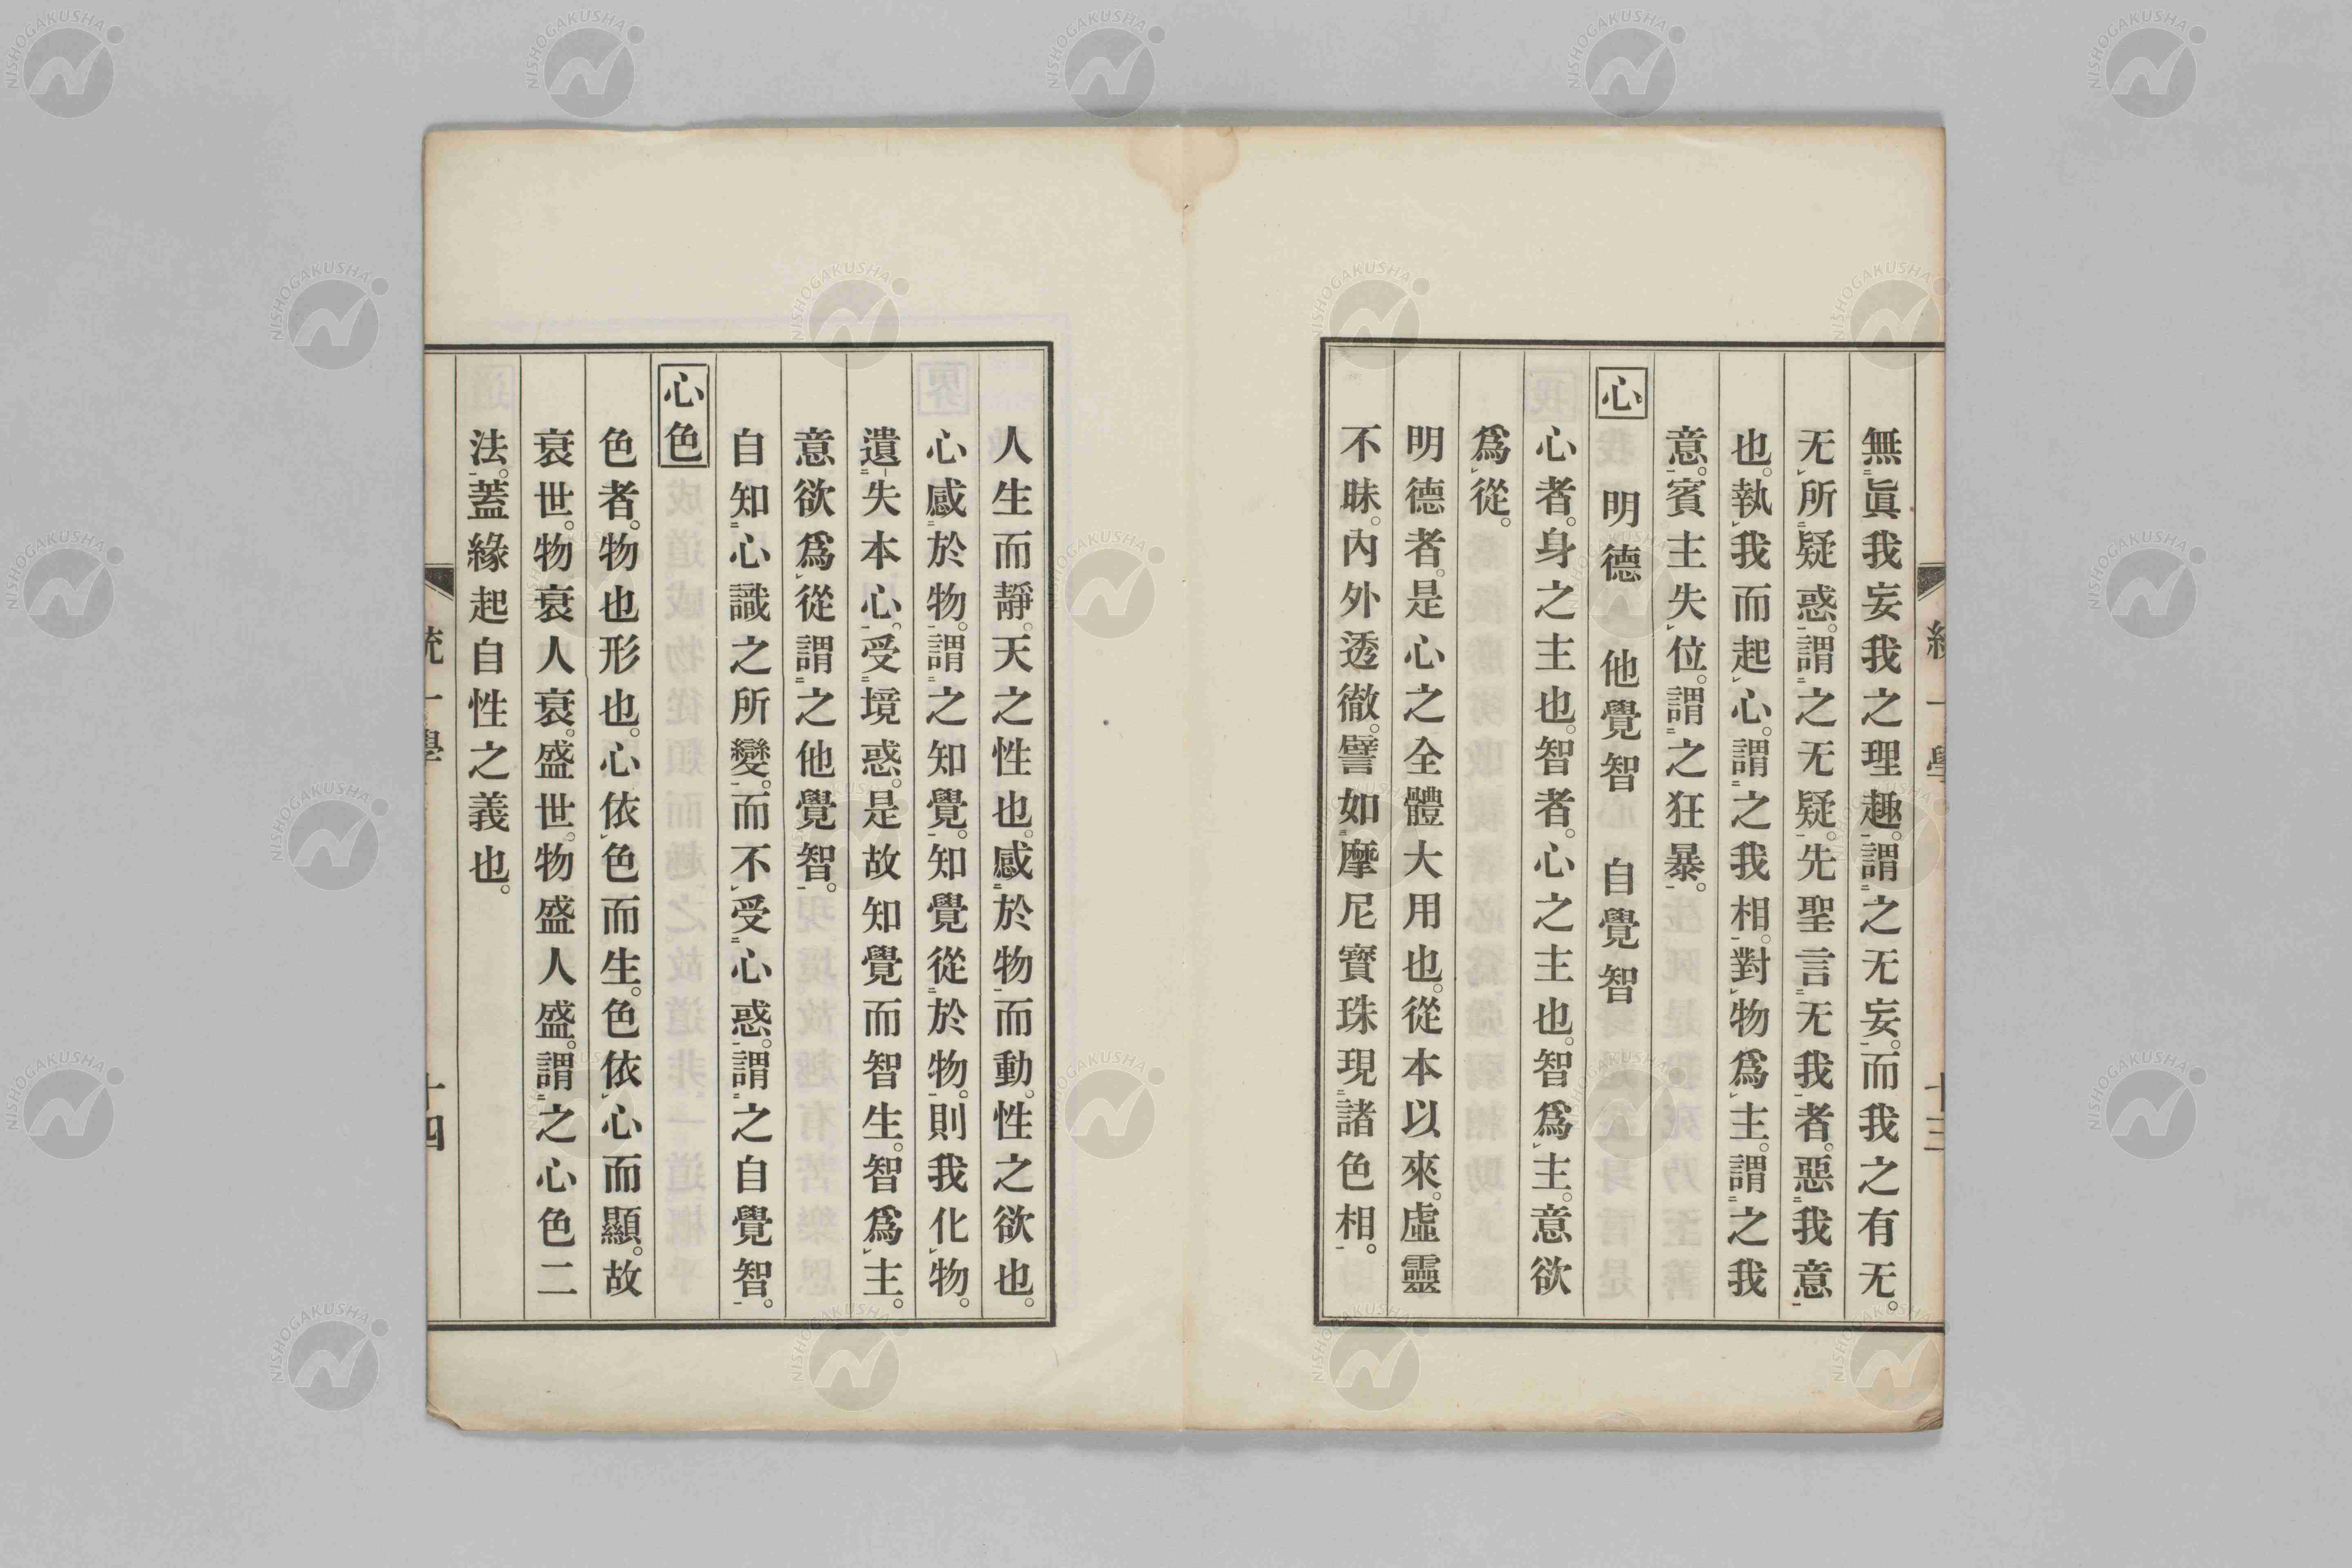 無眞我妄我之理趣。謂之无妄。而我之有无。
无所疑惑。謂之无疑。先聖言无我者。惡我意
也。執我而起心。謂之我相。對物爲主。謂之我
意。賓主失位。謂之狂暴。
心 明德 他覺智 自覺智
心者。身之主也。智者。心之主也。智爲主。意欲
爲從。
明德者。是心之全體大用也。從本以來。虛靈
不昧。內外透徹。譬如摩尼寶珠現諸色相。
統一學 十三
人生而靜。天之性也。感於物而動。性之欲也。
心感於物。謂之知覺。知覺從於物。則我化物。
遺失本心。受境惑。是故知覺而智生。智爲主。
意欲爲從。謂之他覺智。
自知心識之所變。而不受心惑。謂之自覺智。
心色
色者。物也形也。心依色而生。色依心而顯。故
衰世。物衰人衰。盛世。物盛人盛。謂之心色二
法。蓋緣起自性之義也。
統一學 十四
NISHOGAKUSHA